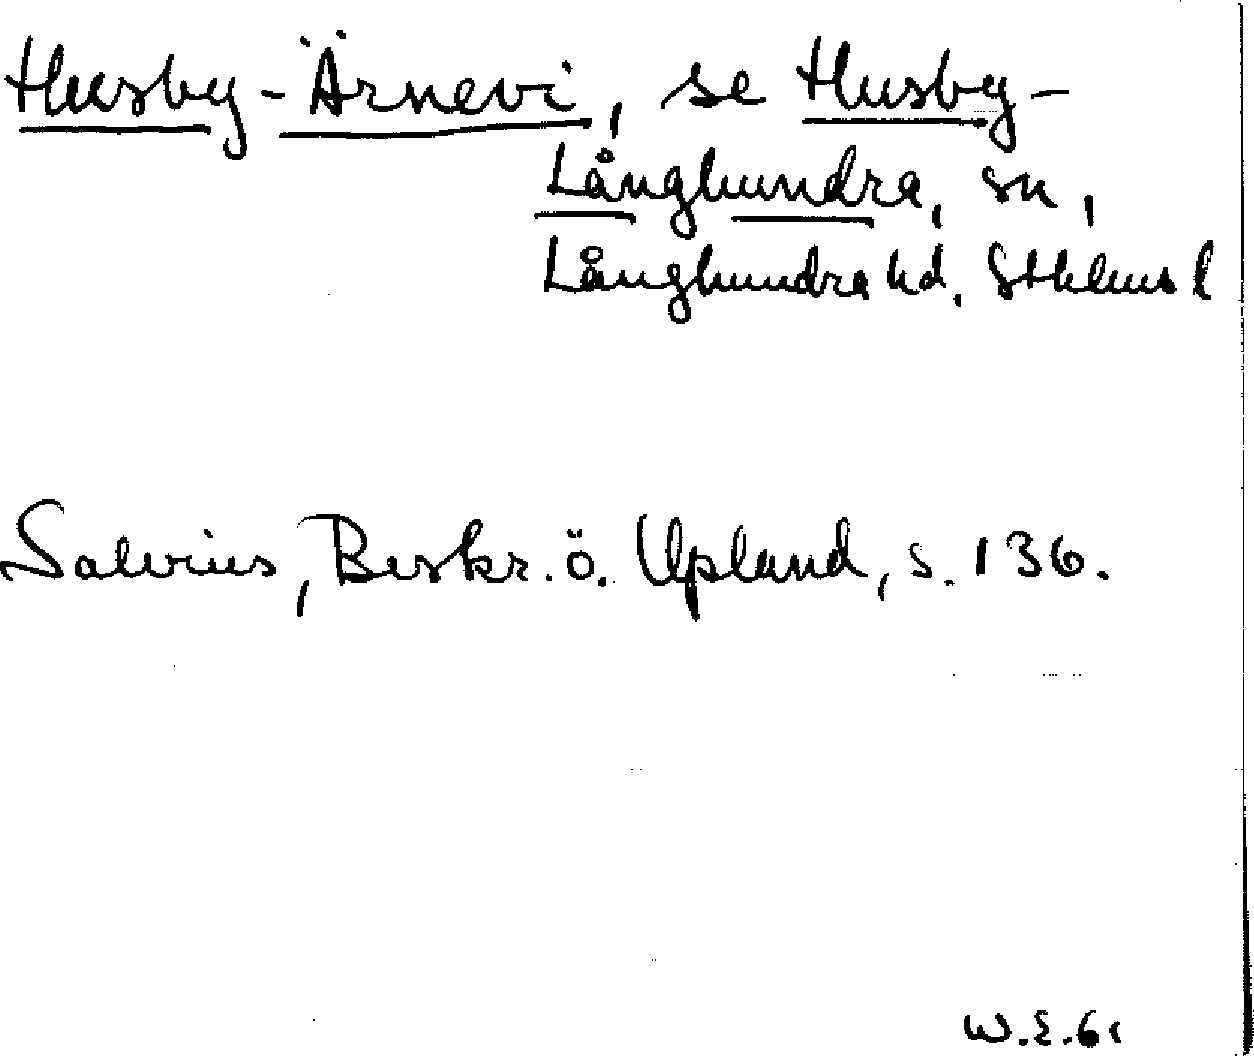 Husby-Ärnevi, se Husby-
Långhundra, sn,
Långhundra hd, Sthlms l
Salvius, Beskr. ö. Upland, s. 136.
W.E.61